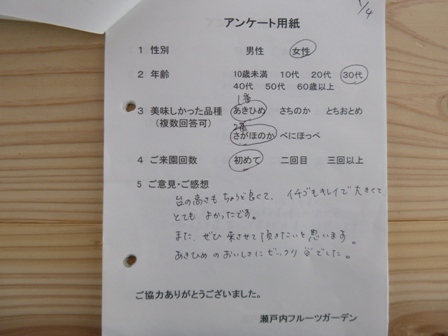 1/4
アンケート用紙
1 性別 男性 女性
2 年齢 10歳未満 10代 20代 30代
40代 50代 60歳以上
1番
3 美味しかった品種 あきひめ さちのか とちおとめ
2番
(複数回答可) さがほのか べにほっぺ
4 ご来園回数 初めて 二回目 三回以上
5 ご意見・ご感想
台の高さもちょうど良くて、イチゴもキレイで大きくて
とてもよかったです。
また ぜひ来させて頂きたいと思います。
あきひめのおいしさにびっくりでした。
ご協力ありがとうございました。
瀬戸内フルーツガーデン